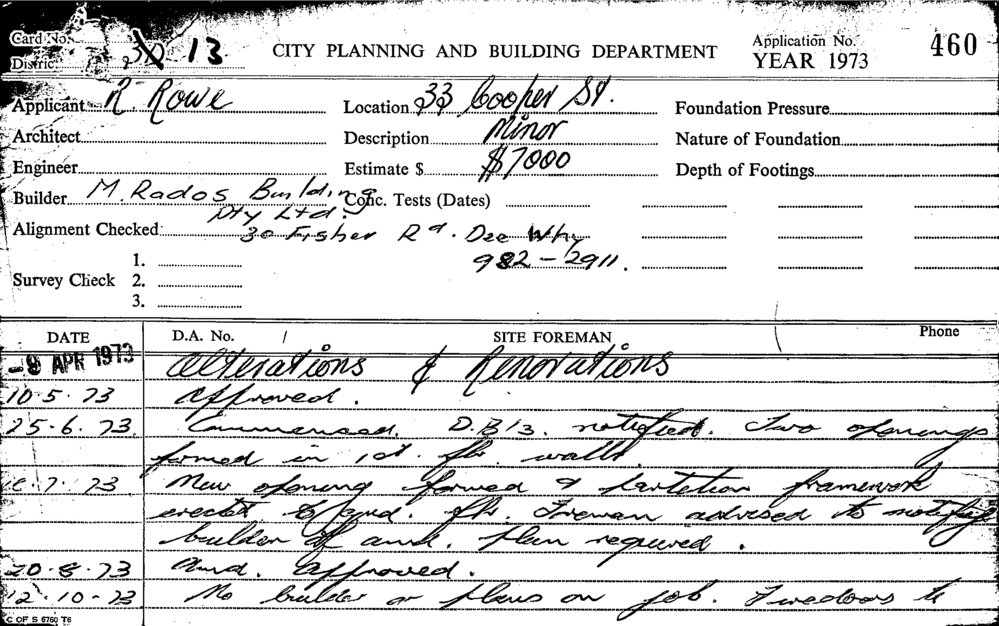 Card No.
District 13
CITY PLANNING AND BUILDING DEPARTMENT
Application No. 460
YEAR 1973
Applicant R Rowe
Location 33 Cooper St.
Foundation Pressure
Architect
Description Minor
Nature of Foundation
Engineer
Estimate $ $7000
Depth of Footings
Builder M. Rados Building
Pty Ltd.
Conc. Tests (Dates)
Alignment Checked
30 Fisher Rd. Dee Why
982-2911.
Survey Check
1.
2.
3.
DATE D.A. No. / SITE FOREMAN Phone
-9 APR 1973 Alterations & Renovations
10.5.73 Approved.
25.6.73 Commenced. D.B's. notified. Two openings
formed in 1st. flr. walls
7.73 New opening formed & partition framework
erect to grd. flr. Foreman advised to notify
builder if amd. plan required.
20.8.73 Amd. Approved.
12.10.73 No builder or plans on job. Firedoors to
C OF S 5760 T6